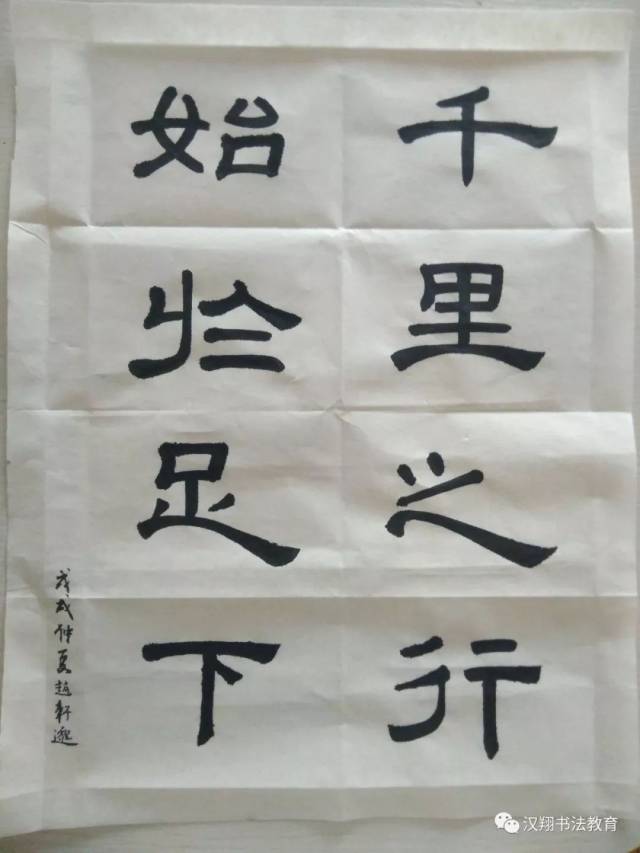 千里之行
始於足下
戊戌仲夏趙軒
汉翔书法教育